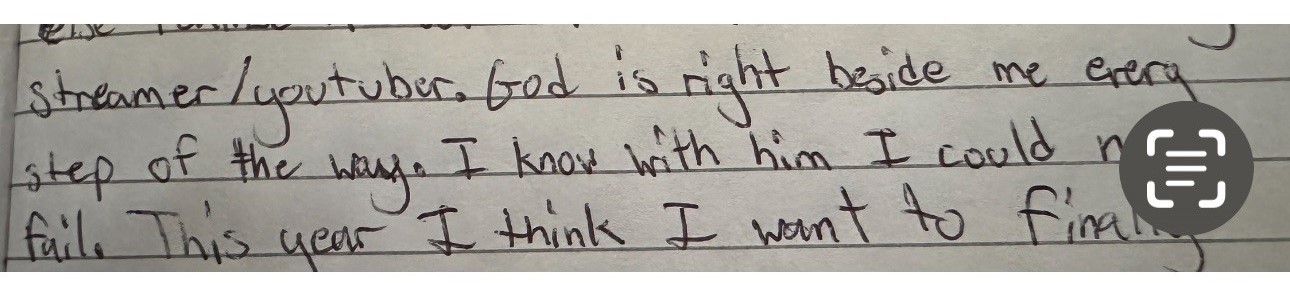 streamer/youtuber. God is right beside me every
step of the way. I know with him I could
fail. This year I think I want to